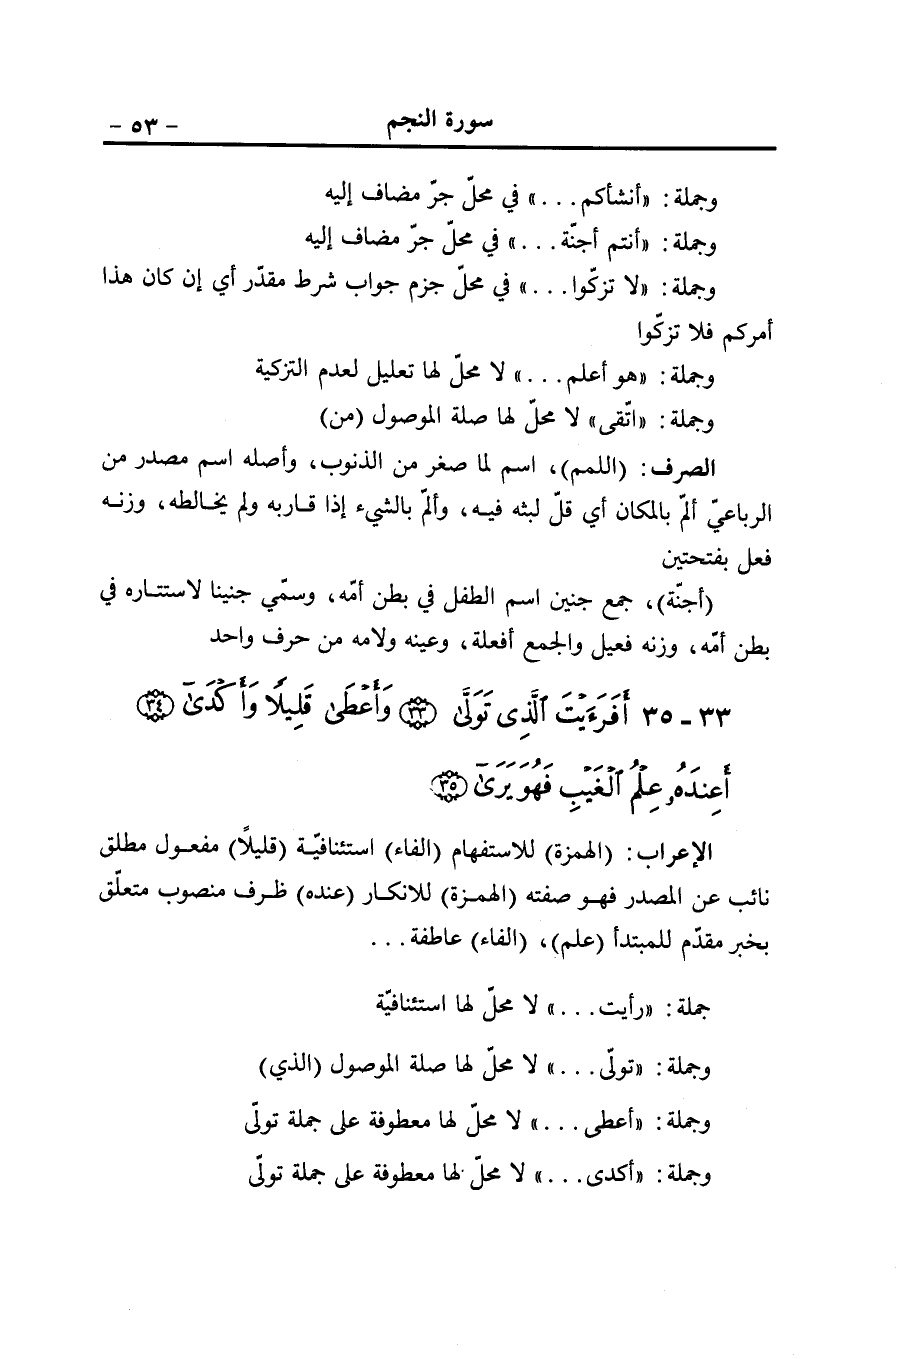 سورة النجم - ٥٣ -
وجملة: «أنشأكم...» في محلّ جرّ مضاف إليه
وجملة: «أنتم أجنّة...» في محلّ جرّ مضاف إليه
وجملة: «لا تزكّوا...» في محلّ جزم جواب شرط مقدّر أي إن كان هذا
أمركم فلا تزكّوا
وجملة: «هو أعلم...» لا محلّ لها تعليل لعدم التزكية
وجملة: «اتّقى» لا محلّ لها صلة الموصول (من)
الصرف: (اللمم)، اسم لما صغر من الذنوب، وأصله اسم مصدر من
الرباعيّ ألمّ بالمكان أي قلّ لبثه فيه، وألمّ بالشيء إذا قاربه ولم يخالطه، وزنه
فعل بفتحتين
(أجنّة)، جمع جنين اسم الطفل في بطن أمّه، وسمّي جنينا لاستتاره في
بطن أمّه، وزنه فعيل والجمع أفعلة، وعينه ولامه من حرف واحد
٣٣ - ٣٥ أَفَرَءَيْتَ ٱلَّذِى تَوَلَّىٰ ٣٣ وَأَعْطَىٰ قَلِيلًا وَأَكْدَىٰٓ ٣٤
أَعِندَهُۥ عِلْمُ ٱلْغَيْبِ فَهُوَ يَرَىٰٓ ٣٥
الإعراب: (الهمزة) للاستفهام (الفاء) استئنافيّة (قليلًا) مفعول مطلق
نائب عن المصدر فهو صفته (الهمزة) للانكار (عنده) ظرف منصوب متعلّق
بخبر مقدّم للمبتدأ (علم)، (الفاء) عاطفة...
جملة: «رأيت...» لا محلّ لها استئنافيّة
وجملة: «تولّى...» لا محلّ لها صلة الموصول (الذي)
وجملة: «أعطى...» لا محلّ لها معطوفة على جملة تولّى
وجملة: «أكدى...» لا محلّ لها معطوفة على جملة تولّى